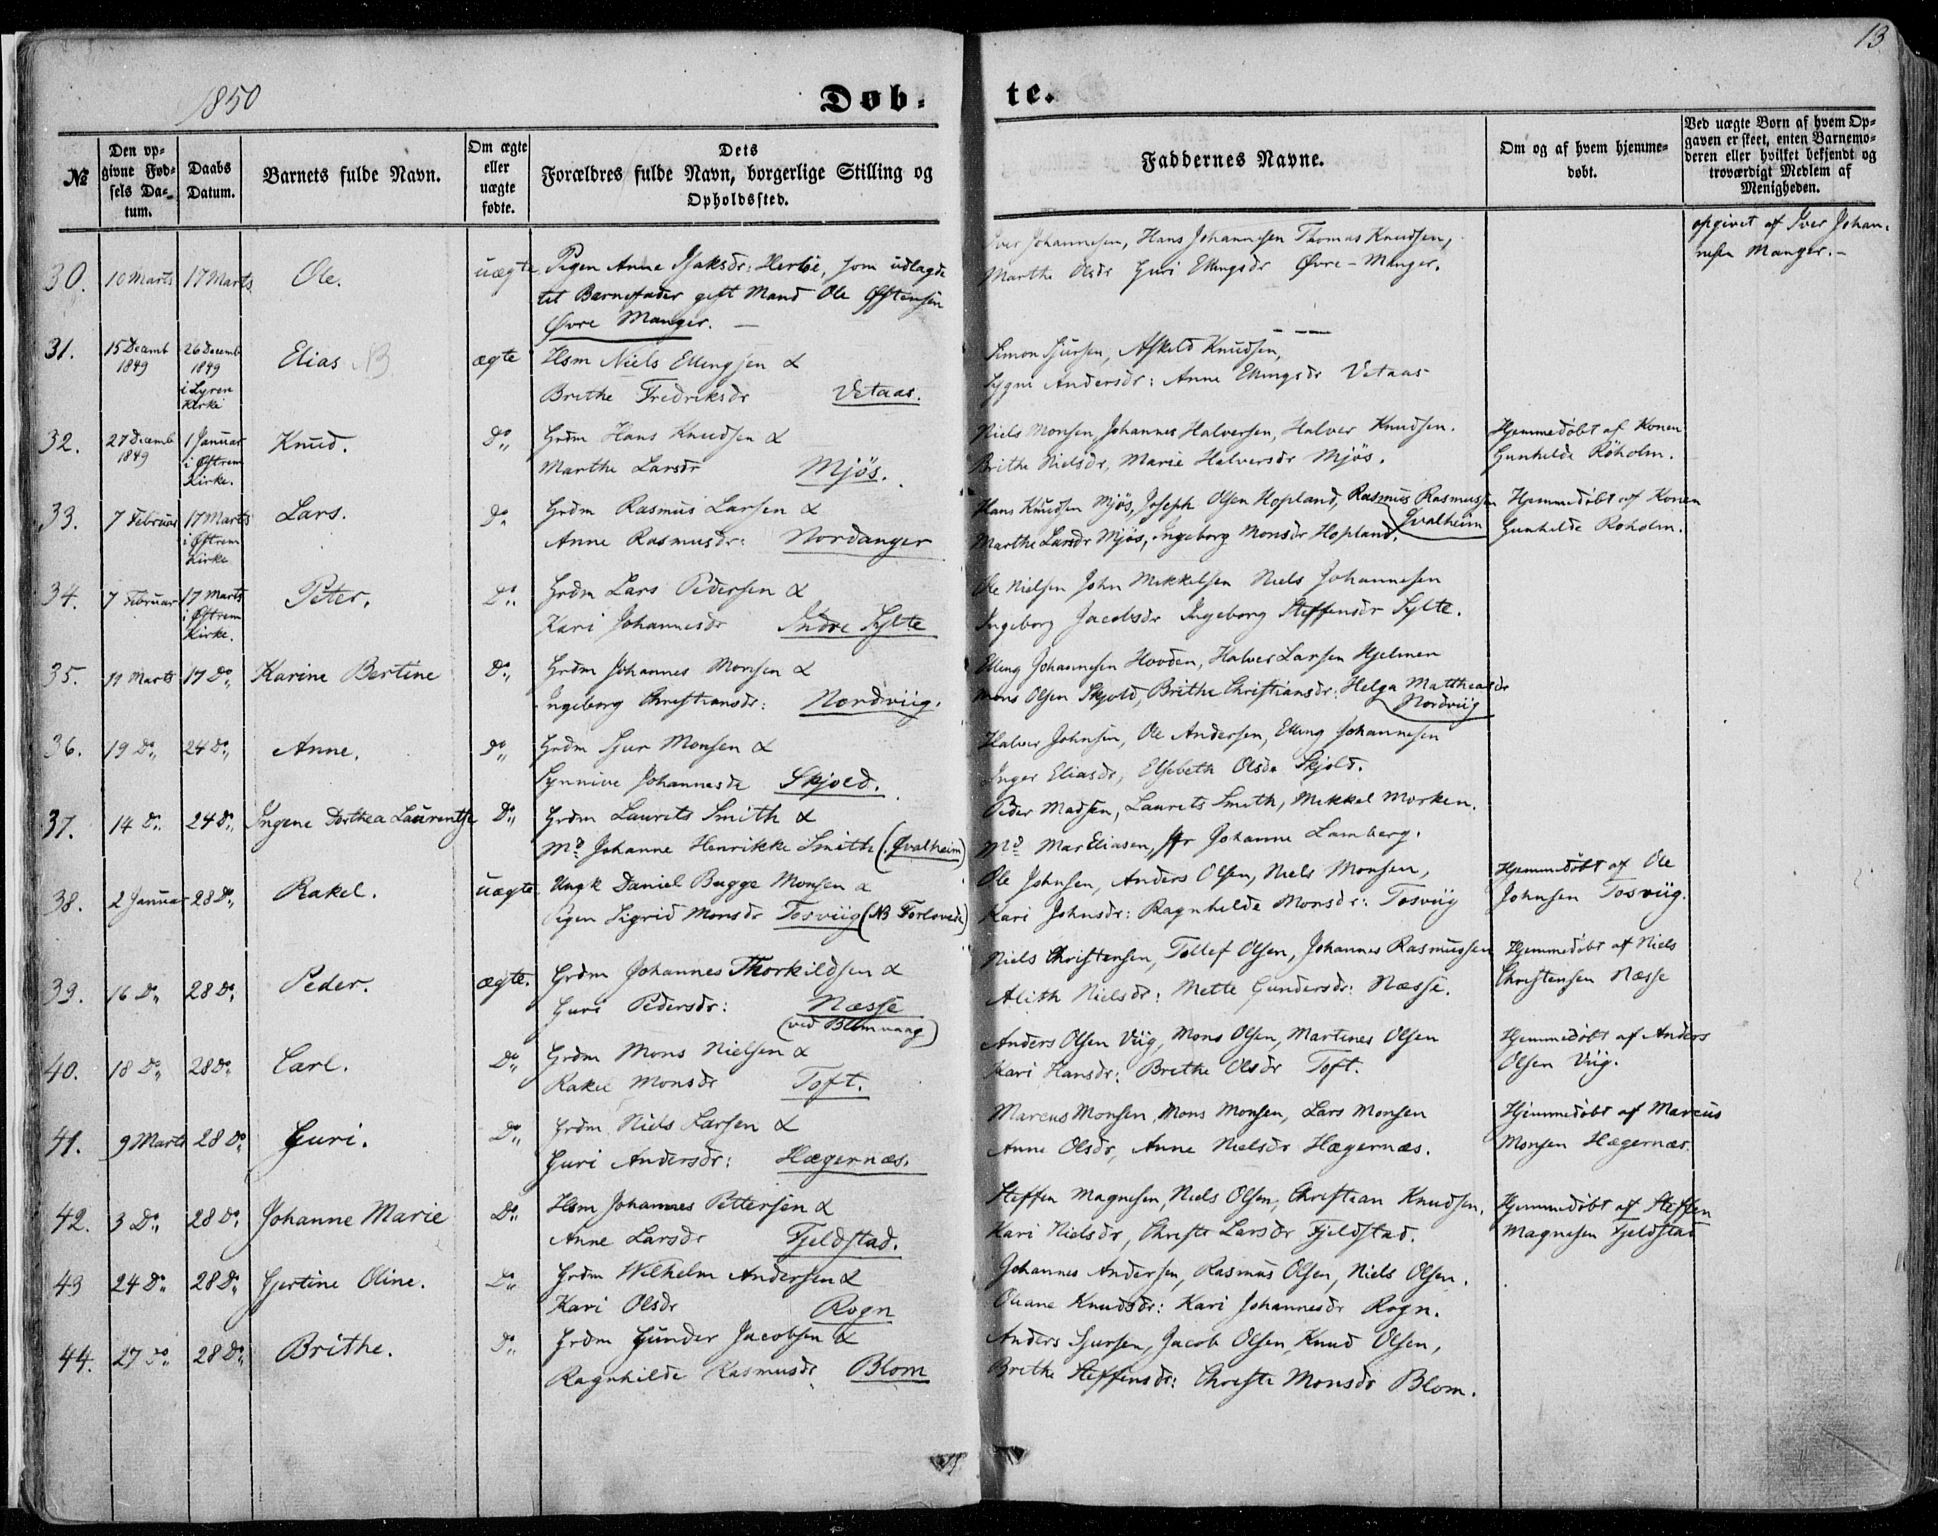 13
1850
Døb-
te.
№
Den op-
givne Fød-
sels Da-
tum.
Daabs
Datum.
Barnets fulde Navn.
Om ægte
eller
uægte
fødte.
Dets
Forældres fulde Navn, borgerlige Stilling og
Opholdssted.
Faddernes Navne.
Om og af hvem hjemme-
døbt.
Ved uægte Børn af hvem Op-
gaven er skeet, enten Barnemo-
deren eller hvilket bekjendt og
troværdigt Medlem af
Menigheden.
30. 10 Marts 17 Marts Ole. uægte Pigen Anne Isaksdr: Herløe, som udlagde
til Barnefader gift Mand Ole Østensen
Øvre Manger. —
Iver Johannesen, Hans Johannesen Thomas Knudsen,
Marthe Olsdr Guri Ellingsdr Øvre-Manger.
opgivet af Iver Johan-
nesen Manger.-
31. 15 Decemb 1849
26 Decemb 1849
i Lygren
Kirke
Elias NB ægte Hsm Niels Ellingsen &
Brithe Fredriksdr Vetaas.
Simon Sjursen, Askild Knudsen,
Sygni Andersdr: Anne Ellingsdr Vetaas
32. 27 Decemb 1849
1 Januar
i Østrem
Kirke.
Knud. Do., Grdm Hans Knudsen &
Marthe Larsdr Mjøs.
Niels Monsen, Johannes Halversen, Halver Knudsen.
Brithe Nielsdr, Marie Halversdr Mjøs.
Hjemmedøbt af Konen
Gunhilde Røholm.
33. 7 Februar 17 Marts
i Østrem
Kirke
Lars. Do., Grdm Rasmus Larsen &
Anne Rasmusdr: Nordanger
Hans Knudsen Mjøs, Joseph Olsen Hopland, Rasmus Rasmussen
Qvalheim
Marthe Larsdr Mjøs, Ingeborg Monsdr Hopland.
Hjemmedøbt af Konen
Gunhilde Roholm.
34. 7 Februar 17 Marts
i Østrem
Kirke.
Peter. Do., Grdm Lars Pedersen &
Kari Johannesdr Indre Sylte
Ole Nielsen John Mikkelsen Niels Johannesen
Ingeborg Jacobsdr Ingeborg Steffensdr Sylte.
35. 11 Marts 17 Do., Karine Bertine Do., Grdm Johannes Monsen &
Ingeborg Christiansdr: Nordviig.
Elling Johannesen Hovden, Halver Larsen Hjelmen
Mons Olsen Skjold, Brithe Christiansdr: Helga Matthiasdr
Nordviig
36. 19 Do., 24 Do., Anne. Do., Grdm Sjur Monsen &
Synnive Johannesdr Skjold.
Halver Johnsen, Ole Andersen, Elling Johannesen
Inger Eliasdr, Elsebeth Olsdr Skjold.
37. 14 Do., 24 Do., Ingene Dorthea Laurentse Do., Grdm Laurits Smith &
Md. Johanne Henrikke Smith (Qvalheim)
Peder Madsen, Laurits Smith, Mikkel Morken.
Md. Mar Eliasen, Johanne Lamberg.
38. 2 Januar 28 Do., Rakel. uægte Ungk Daniel Bugge Monsen &
Pigen Sigrid Monsdr Tosviig (NB Forlovede)
Ole Johnsen, Anders Olsen, Niels Monsen,
Kari Johnsdr: Ragnhilde Monsdr: Tosviig
Hjemmedøbt af Ole
Johnsen Tosviig.
39. 16 Do., 28 Do., Peder. ægte. Grdm Johannes Thorkildsen &
Guri Pedersdr: Næsse
(ved Blomvaag)
Niels Christensen, Tollef Olsen, Johannes Rasmussen
Alith Nielsdr: Mette Gundersdr: Næsse.
Hjemmedøbt af Niels
Christensen Næsse
40. 18 Do., 28 Do., Carl. Do., Grdm Mons Nielsen &
Rakel Monsdr Toft.
Anders Olsen Viig, Mons Olsen, Martines Olsen
Kari Hansdr: Brithe Olsdr Toft.
Hjemmedøbt af Anders
Olsen Viig.
41. 9 Marts 28 Do., Guri. Do., Grdm Niels Larsen &
Guri Andersdr: Hægernæs.
Marcus Monsen, Mons Monsen, Lars Monsen
Anne Olsdr, Anne Nielsdr Hægernæs.
Hjemmedøbt af Marcus
Monsen Hægernæs.
42. 3 Do., 28 Do., Johanne Marie Do., Hsm Johannes Pettersen &
Anne Larsdr Fjeldstad.
Steffen Magnesen, Niels Olsen, Christian Knudsen,
Kari Nielsdr, Christi Larsdr Fjeldstad.
Hjemmedøbt af Steffen
Magnesen Fjeldstad
43 24 Do., 28 Do., Gjertine Oline. Do., Grdm Wilhelm Andersen &
Kari Olsdr Rogn
Johannes Andersen, Rasmus Olsen, Niels Olsen.
Oliane Knudsdr: Kari Johannesdr Rogn.
44. 27 Do., 28 Do., Brithe. Do., Grdm Gunder Jacobsen &
Ragnhilde Rasmusdr, Blom
Anders Sjursen, Jacob Olsen, Knud Olsen,
Brithe Steffensdr: Christi Monsdr Blom.